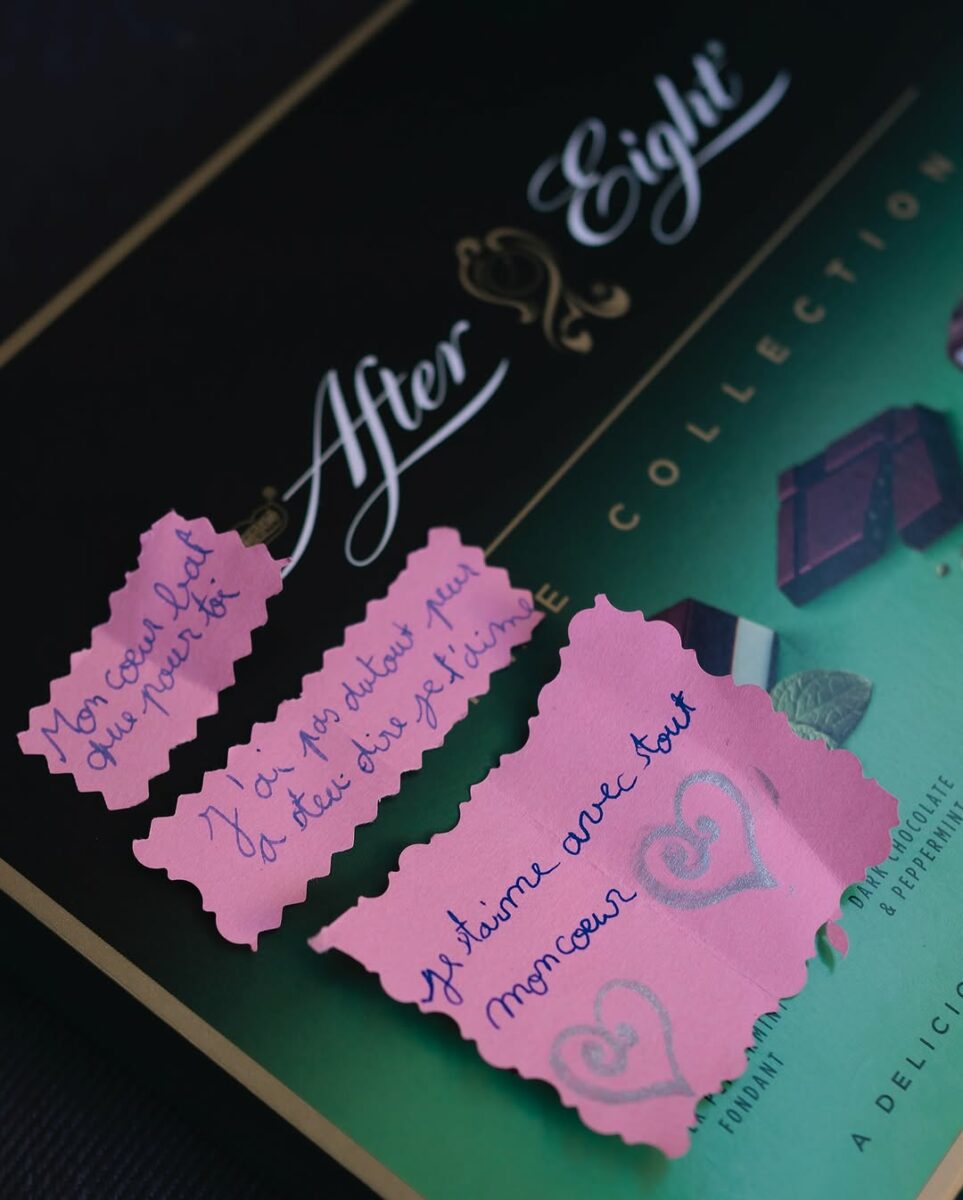 After Eight
COLLECTION
Mon coeur bat
que pour toi
J'ai pas dutout peur
a te dire je t'aime
je t'aime avec tout
mon coeur
DARK CHOCOLATE
& PEPPERMINT
FONDANT
A DELICIO